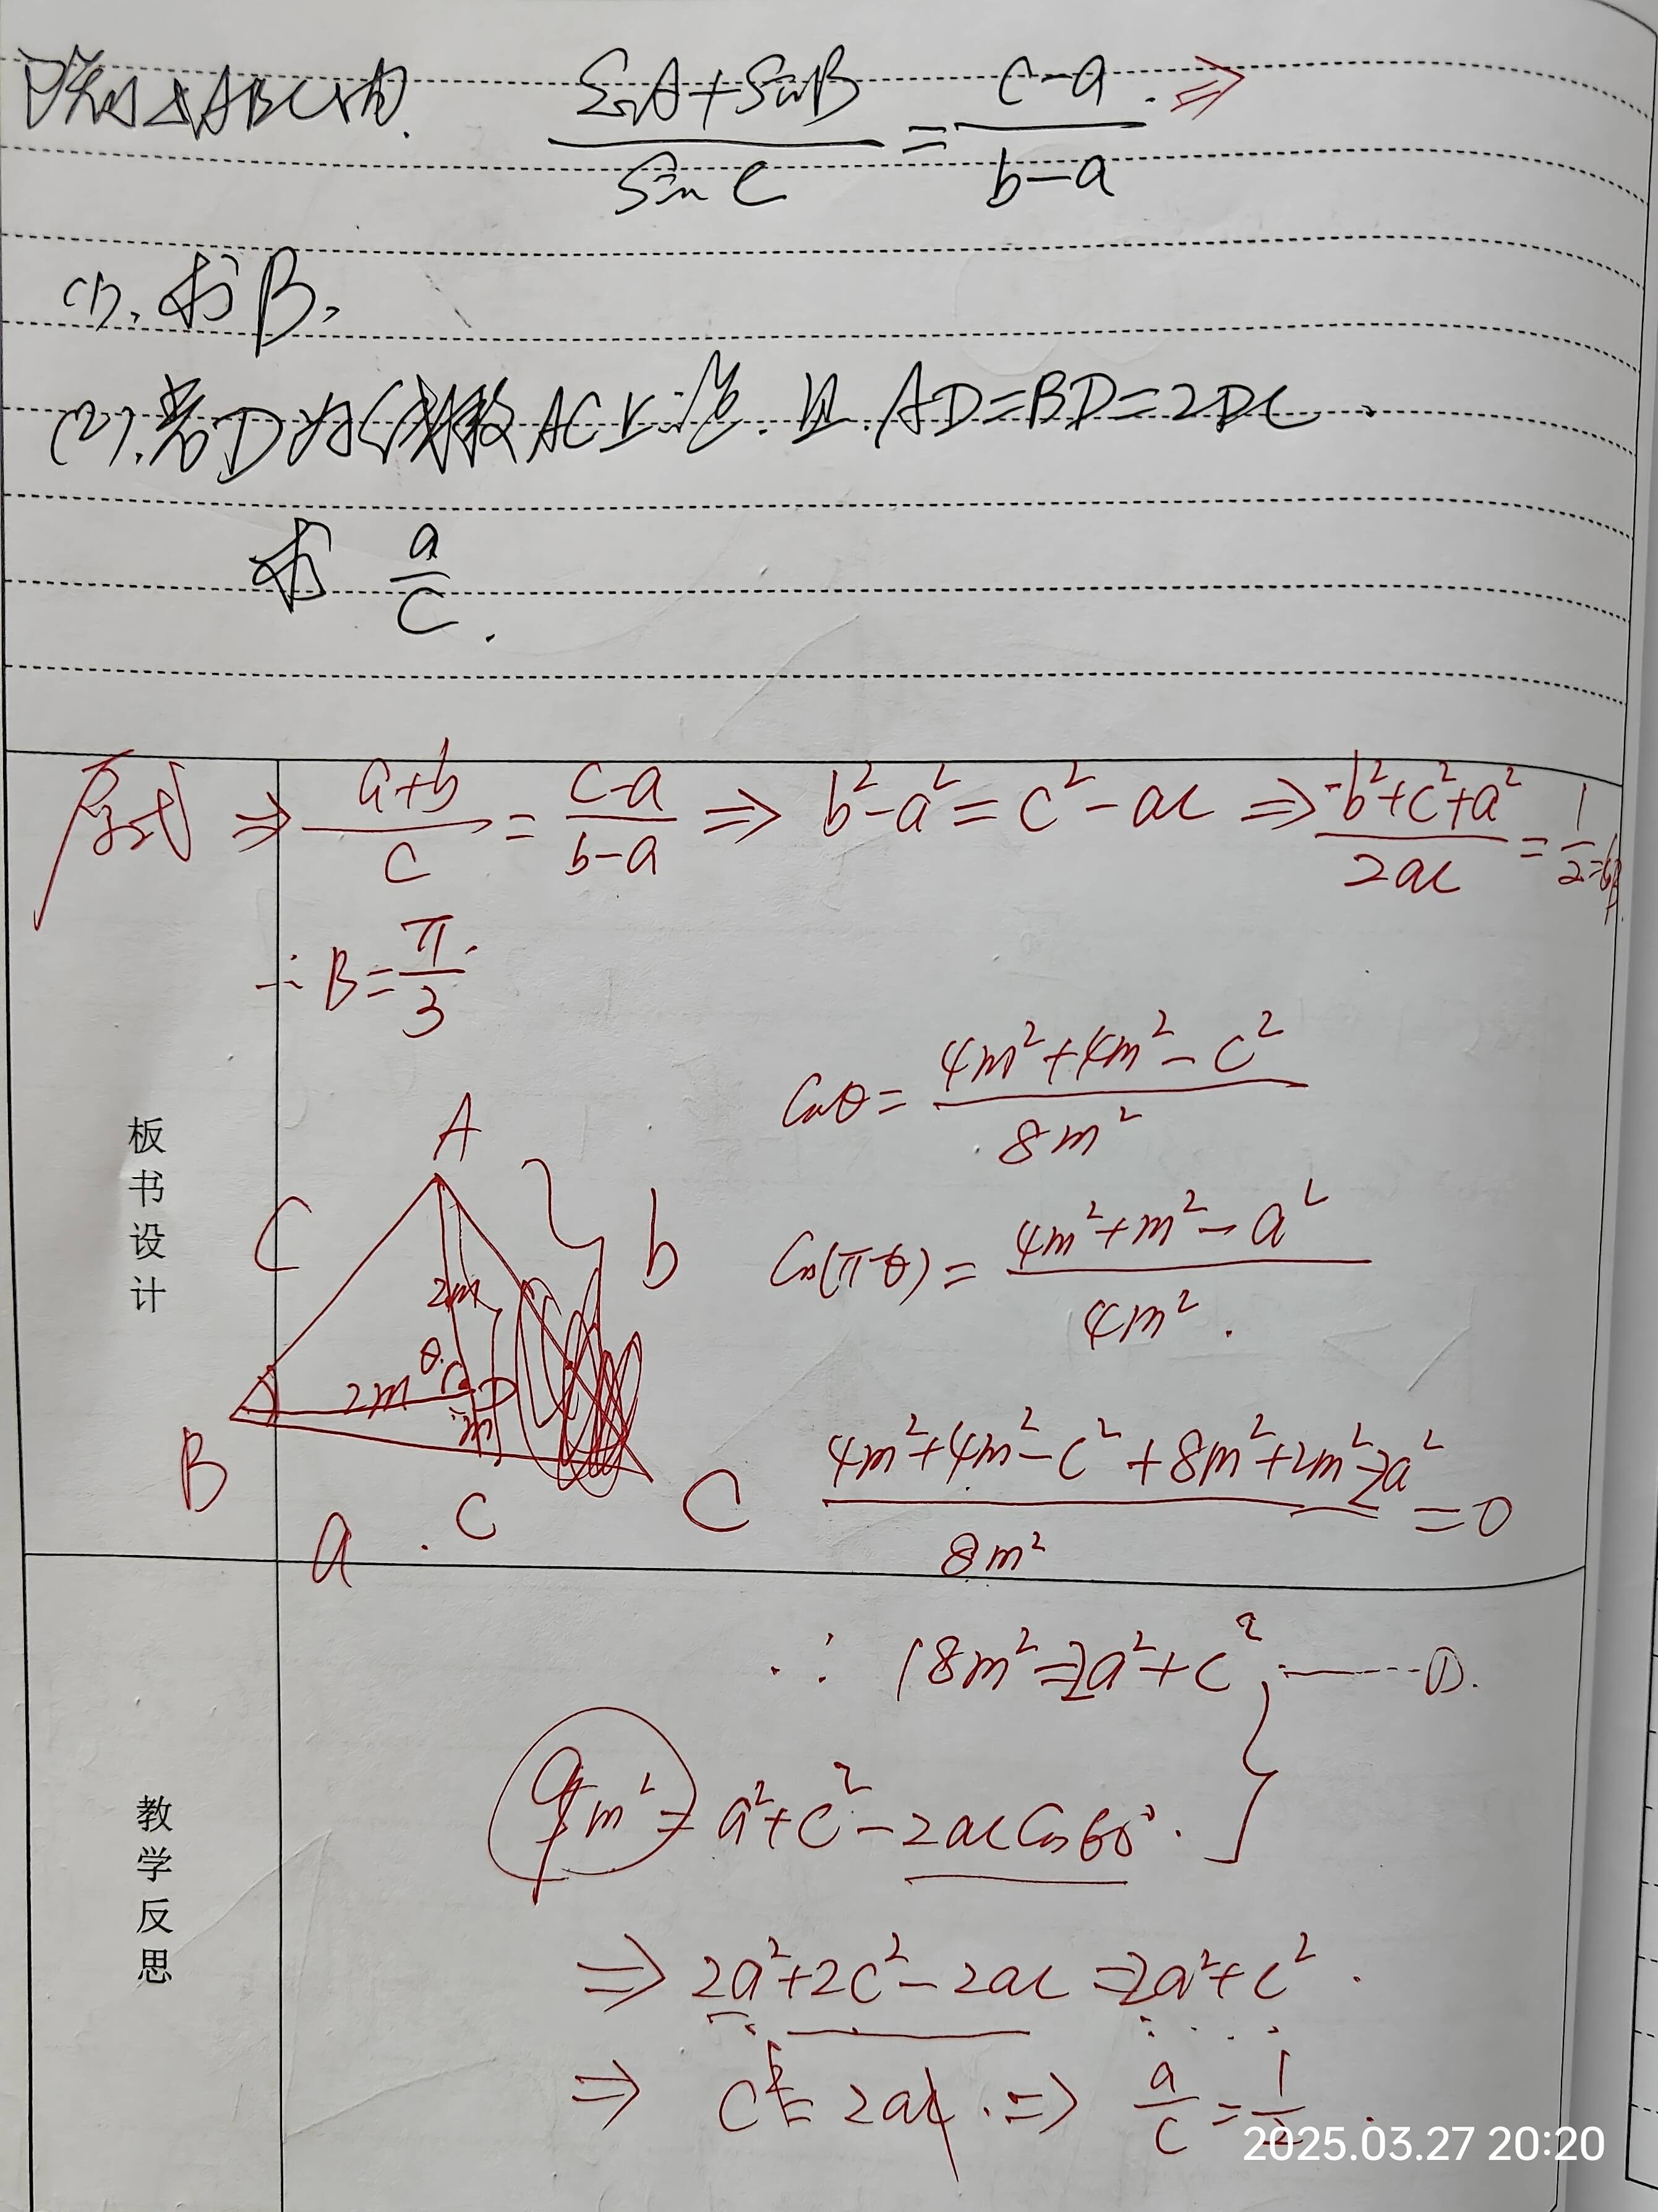 已知△ABC中. (SinA+SinB)/(Sin C) = (c-a)/(b-a). ⇒
(1). 求B,
(2). 若D为线段AC上一点. 且. AD=BD=2DC.
求 a/c.
原式 ⇒ (a+b)/c = (c-a)/(b-a) ⇒ b²-a²=c²-ac ⇒ (-b²+c²+a²)/(2ac) = 1/2 = cosB.
∴ B=π/3.
板书设计
Cosθ= (4m²+4m²-c²)/(8m²)
Cos(π-θ) = (4m²+m²-a²)/(4m²).
A
C
b
2m
θ
2m
D
m
B
C
a
C
(4m²+4m²-c²+8m²+2m²-2a²)/(8m²) =0
∴ 18m²=2a²+c² ------①.
9m² = a²+c²-2acCos60°.
教学反思
⇒ 2a²+2c²-2ac=2a²+c².
⇒ c²=2ac. ⇒ a/c=1/2.
2025.03.27 20:20